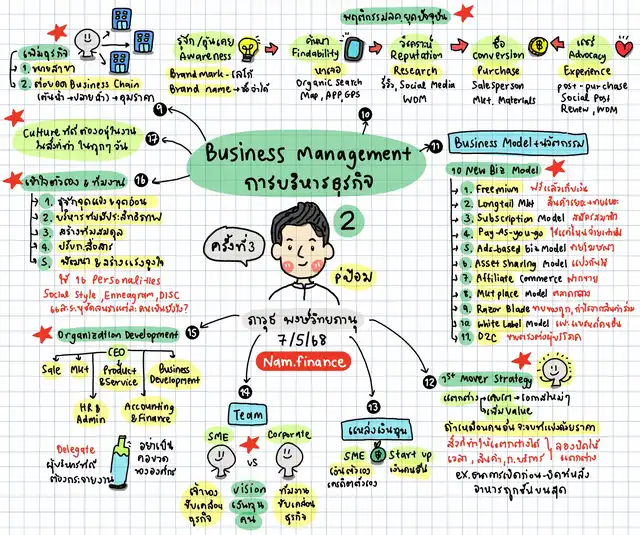 Business Management
การบริหารธุรกิจ
2
ครั้งที่3
พี่ป้อม
ภาวุธ พงษ์วิทยภานุ
7/5/68
Nam.finance
9
เพิ่มธุรกิจ
1. ขยายสาขา
2. ต่อยอด Business Chain
(ต้นน้ำ - ปลายน้ำ) → คุมราคา
10
พฤติกรรมลูกค้ายุคปัจจุบัน
รู้จัก/คุ้นเคย
Awareness
Brand mark - โลโก้
Brand name → ชื่อจำได้
ค้นหา
Findability
หาเจอ
Organic Search
Map, APP, GPS
วิเคราะห์
Reputation
Research
รีวิว, Social Media
WOM
ซื้อ
Conversion
Purchase
Salesperson
Mkt. Materials
แชร์
Advocacy
Experience
post - purchase
Social Post
Review, WOM
11
Business Model + นวัตกรรม
10 New Biz Model
1. Freemium ฟรีแล้วเก็บเงิน
2. Longtail Mkt สินค้าเยอะ
3. Subscription Model สมัครสมาชิก
4. Pay-As-you-go ใช้แค่ไหนจ่ายเท่านั้น
5. Ads-based biz Model ขายโฆษณา
6. Asset Sharing Model แบ่งกันใช้
7. Affiliate Commerce ฝากขาย
8. Mktplace Model ตลาดกลาง
9. Razor Blade ขายของถูก, กำไรจากสินค้าร่วม
10. White Label Model แปะแบรนด์คนอื่น
11. D2C ขายตรงต่อผู้บริโภค
12
1st Mover Strategy
แตกต่าง → เติมเต็ม → โอกาสใหม่ๆ
→ เพิ่ม Value
ถ้าเหมือนคนอื่น จะจบที่แข่งด้วยราคา
สิ่งที่ทำให้แตกต่างได้
เวลา, สินค้า, ท. บริการ
ลองปิดให้
แตกต่าง
ex. ธนาคารเปิดก่อน-ปิดทีหลัง
อาหารถูกขึ้นบนสุด
13
แหล่งเงินทุน
SME
เงินตัวเอง
เครดิตตัวเอง
Start up
เงินคนอื่น
14
Team
SME
vs
Corporate
เจ้าของ
ขับเคลื่อน
ธุรกิจ
vision
เงินทุน
คน
ทีมงาน
ขับเคลื่อน
ธุรกิจ
15
Organization Development
CEO
Sale
Mkt
Product
& Service
Business
Development
HR &
Admin
Accounting
& Finance
Delegate
ผู้บริหารที่ดี
ต้องกระจายงาน
อย่าเป็น
คอขวด
ขององค์กร
16
เข้าใจตัวเอง & ทีมงาน
1. รู้จักจุดแข็ง จุดอ่อน
2. บริหารทีมมีประสิทธิภาพ
3. สร้างทีมสมดุล
4. ปรับก.สื่อสาร
5. พัฒนา & สร้างแรงจูงใจ
ใช้ 16 Personalities
Social Style, Enneagram, DISC
17
Culture ที่ดี ต้องอยู่ในงาน
ในสิ่งที่ทำ ในทุกๆ วัน